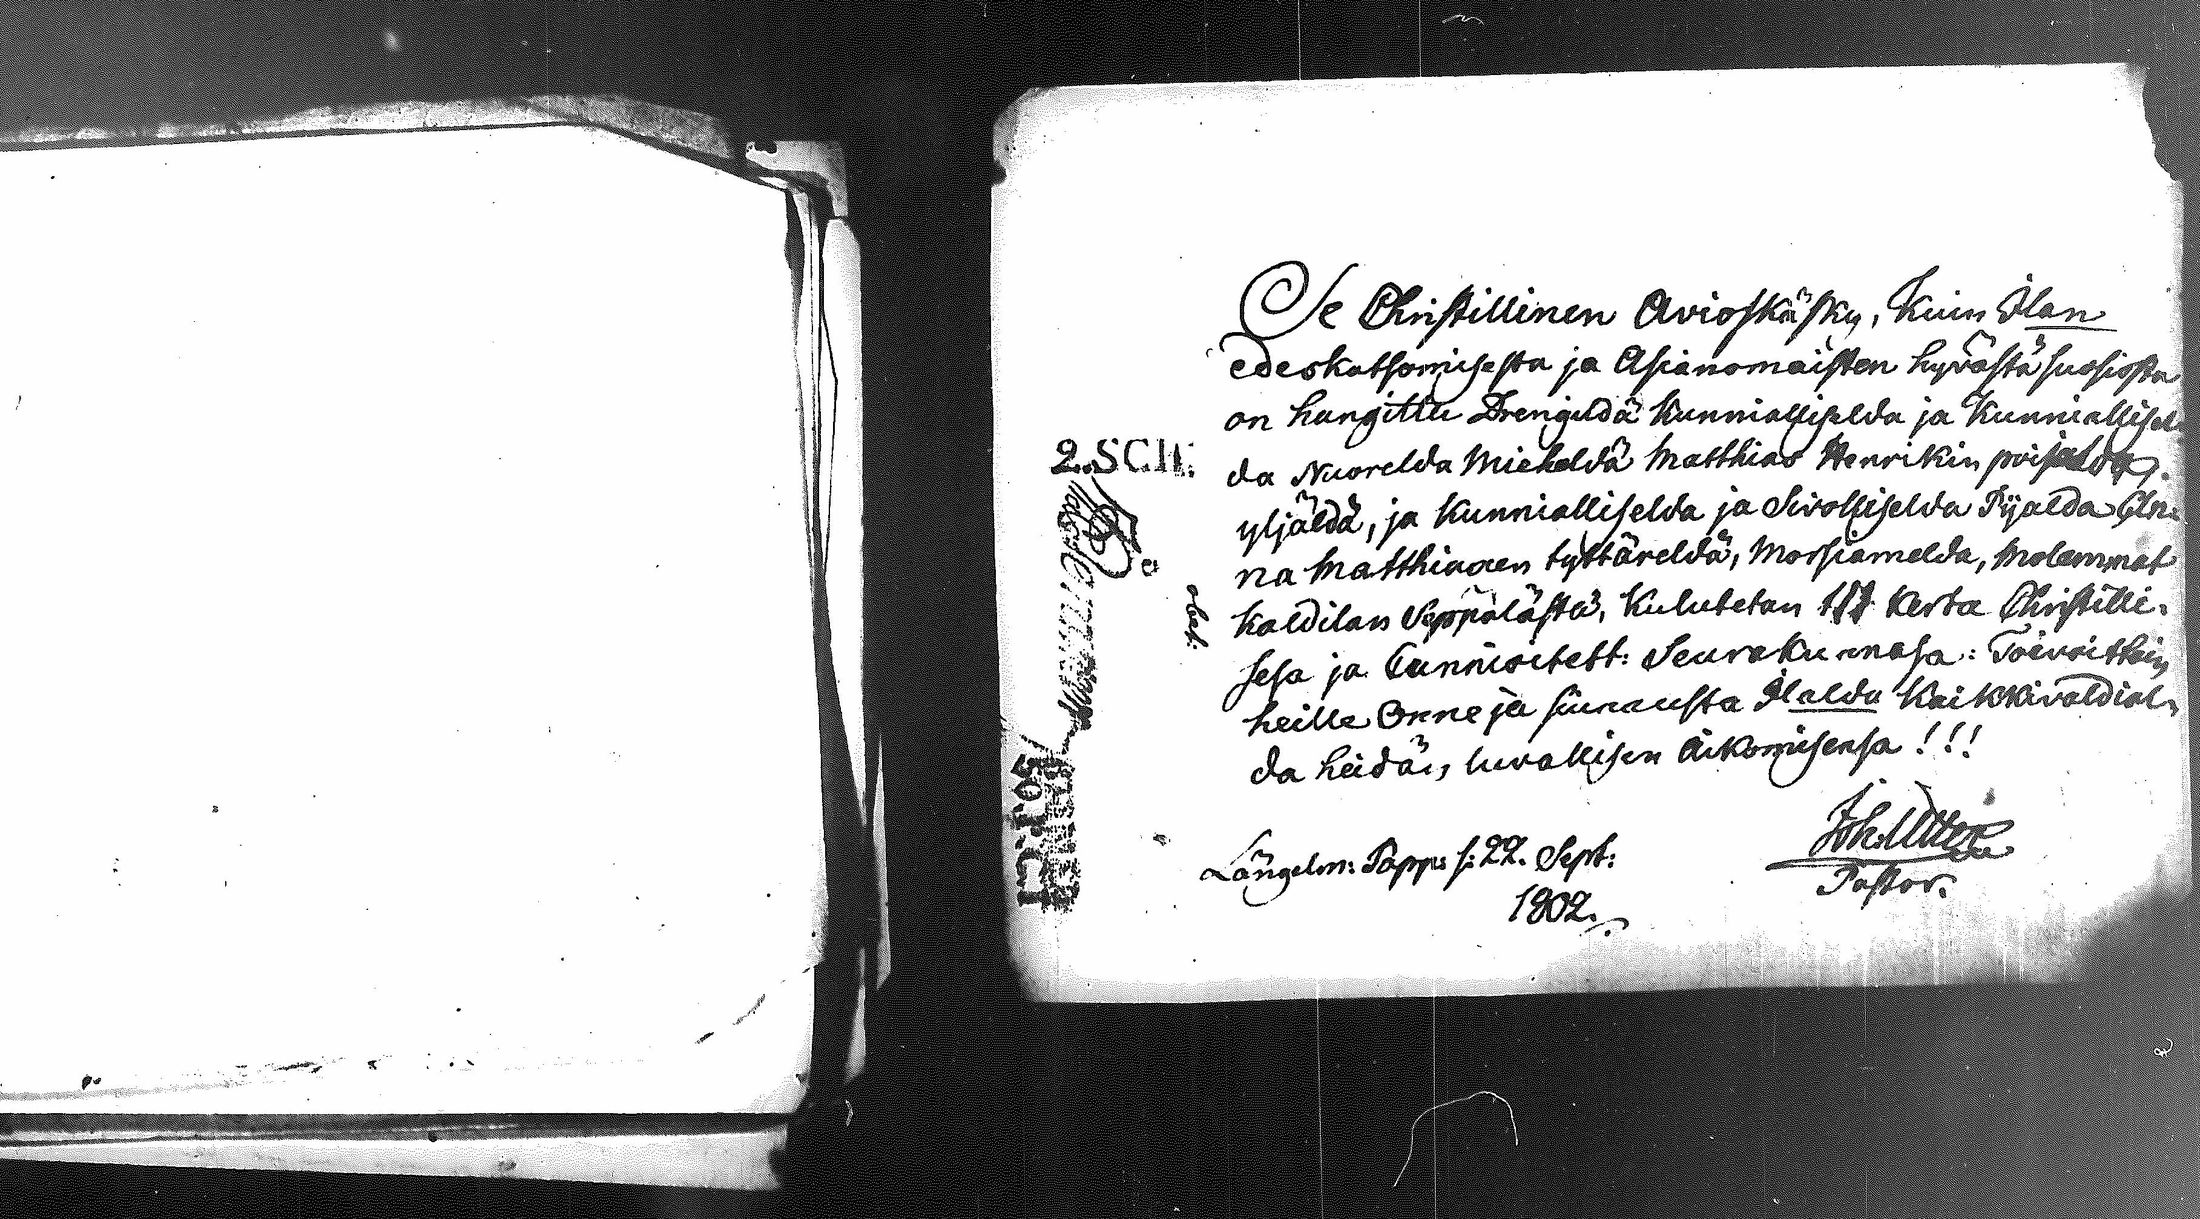 Se Christillinen Avioskäsky, kuin Ylan
edeskatsomisesta ja Asianomaisten hyvästä suosiosta
on hangittu Drengildä kunnialliselda ja Kunniallisel-
da Nuorelda Mieheldä Matthias Henrikin poijalda
yljäldä, ja kunnialliselda ja Sivolliselda Pijalda An-
na Matthiaxen tyttäreldä, Morsiamelda, Molemmat
kaldilan Seppälästä, kulutetan kerta Christilli-
sesa ja Cunnioitett: Seurakunnasa: Toivoittain
heille Onne ja siunausta Ylalda Kaikkivaldial-
da heidän luvallisen Aikomisensa!!!
Längelm: Papp: s: 22. Sept:
1802.
Pastor.
2. SCH.
obet: